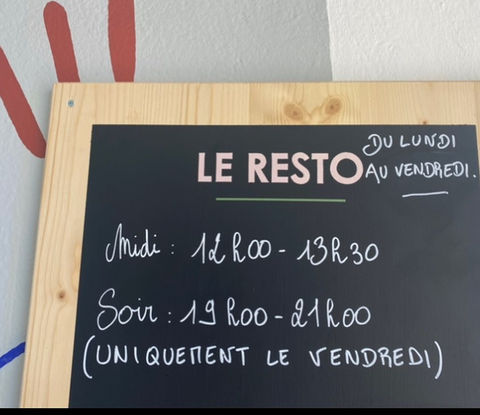 LE RESTO
DU LUNDI
AU VENDREDI.
Midi : 12h00 - 13h30
Soir : 19h00 - 21h00
(UNIQUEMENT LE VENDREDI)